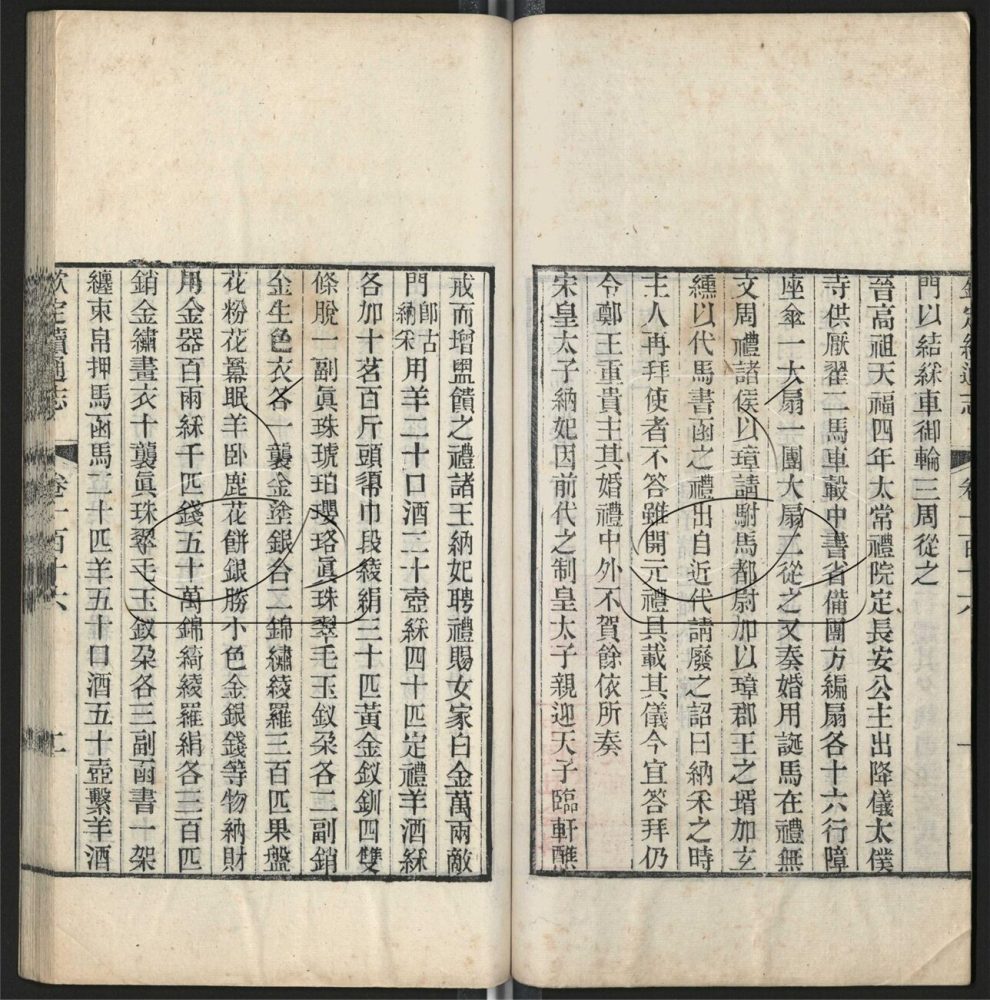 欽定續通志 卷一百十六 一
門以結綵車御輪三周從之
晉高祖天福四年太常禮院定長安公主出降儀太僕
寺供厭翟二馬車轂中書省備團方編扇各十六行障
座傘一大扇一團大扇二從之又奏婚用誕馬在禮無
文周禮諸侯以璋請駙馬都尉加以璋郡王之壻加玄
纁以代馬書函之禮出自近代請廢之詔曰納采之時
主人再拜使者不答雖開元禮具載其儀今宜答拜仍
令鄭王重貴主其婚禮中外不賀餘依所奏
宋皇太子納妃因前代之制皇太子親迎天子臨軒醮
戒而增盥饋之禮諸王納妃聘禮賜女家白金萬兩敵
門即古納采用羊二十口酒二十壺綵四十匹定禮羊酒綵
各加十茗百斤頭㡞巾段綾絹三十匹黃金釵釧四雙
條脫一副眞珠琥珀瓔珞眞珠翠毛玉釵朶各二副銷
金生色衣各一襲金塗銀合二錦繡綾羅三百匹果盤
花粉花冪眠羊卧鹿花餅銀勝小色金銀錢等物納財
用金器百兩綵千匹錢五十萬錦綺綾羅絹各三百匹
銷金繡畫衣十襲眞珠翠毛玉釵朶各三副函書一架
纏束帛押馬函馬二十匹羊五十口酒五十壺繫羊酒
欽定續通志 卷一百十六 二